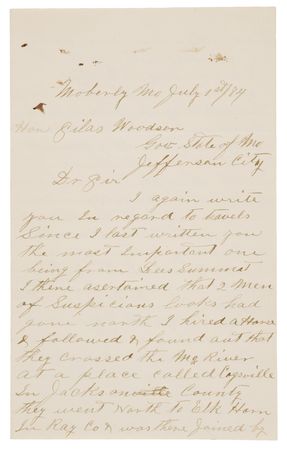 Moberly Mo July 1st/74
Hon Silas Woodson
Gov State of Mo
Jefferson City
Dr Sir
I again write
you In regard to travels
Since I last written you
the most Important one
being from Lees Summit
I there asertained that 2 Men
of Suspicious looks had
gone north I hired a Horse
& followed & found out that
they crossed the Mo River
at a place called
In Jackson County
they went North to Elk Horn
In Ray Co & was there Joined by